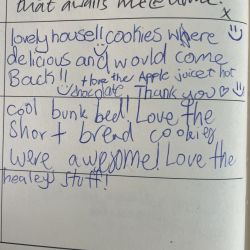 that awaits me @ home.
x
lovely house!! cookies where
delicious and would come
Back!! + love the Apple juice + hot
chocolate Thank you
cool bunk bed! Love the
Short bread cookies
were awesome! Love the
healey stuff!